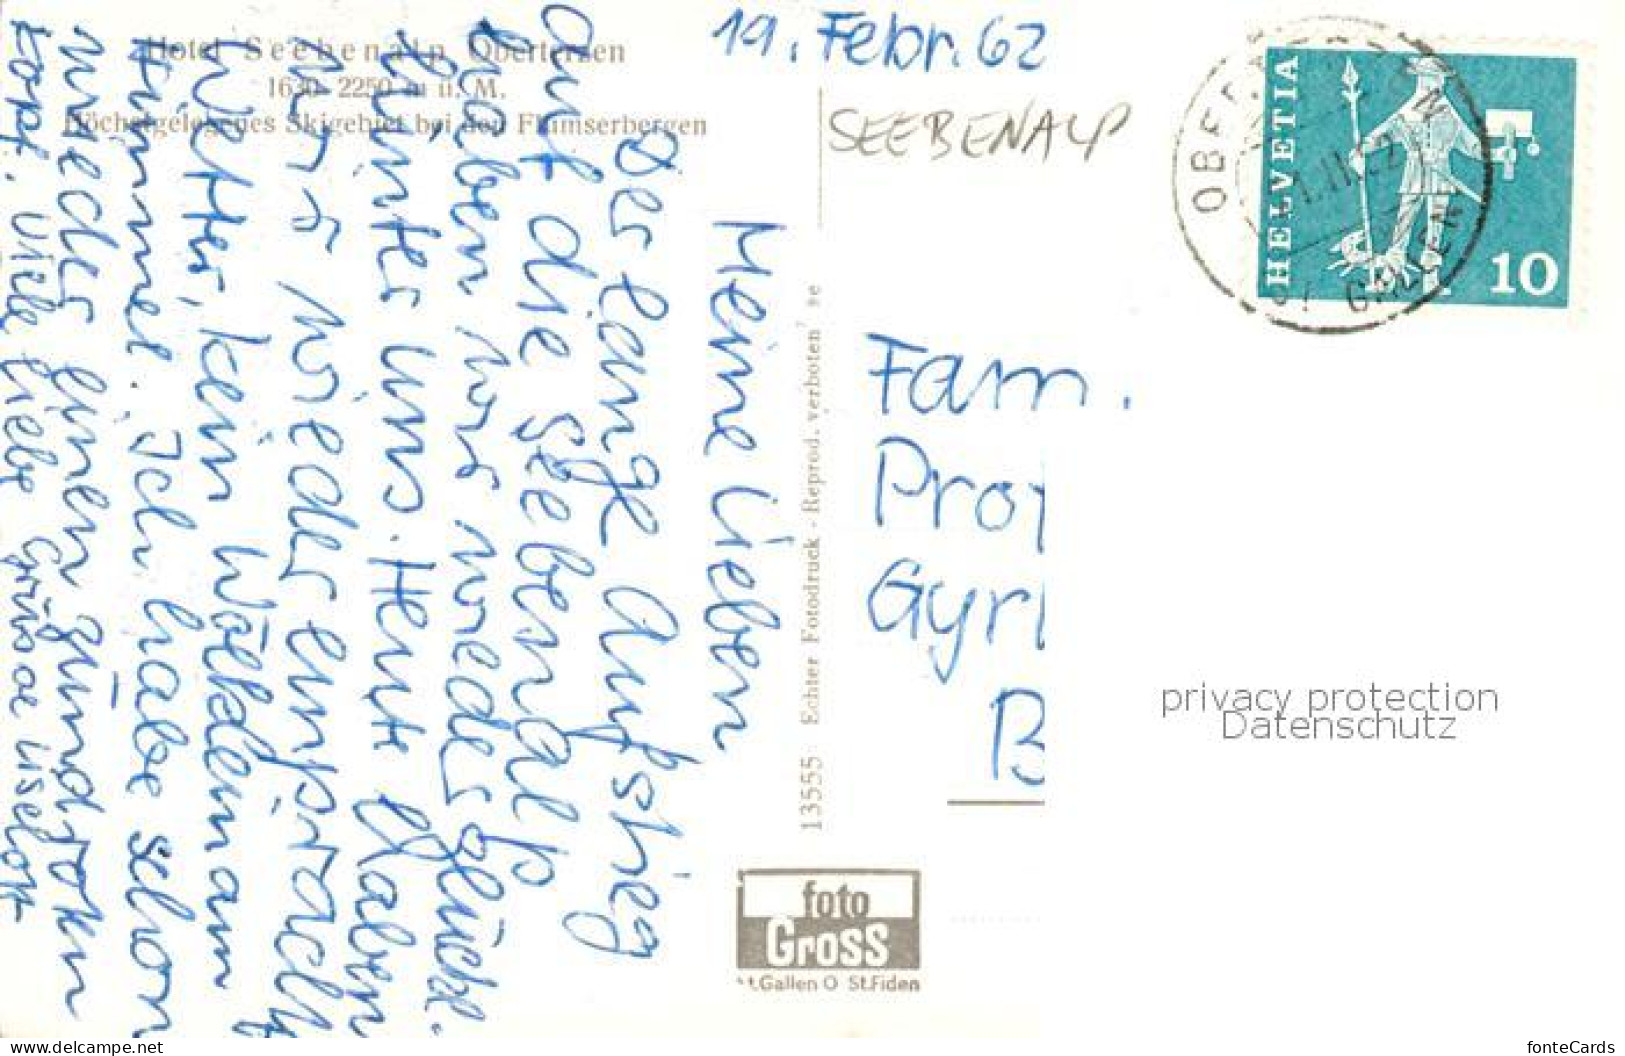 Hotel Seebenalp Oberterzen
1630-2250 m ü. M.
Höchstgelegenes Skigebiet bei den Flumserbergen
19. Febr. 62
SEEBENALP
HELVETIA
10
OBERTERZEN
ST. GALLEN
Meine Lieben
Der lange Aufstieg
auf die Seebenalp
haben wir wieder glückl.
hinter uns. Heute haben
wir wieder ein
Wetter, kein Wölklein am
Himmel. Ich habe schon
wieder einen
Kopf. Viele liebe Grüsse Liselott
13555 Echter Fotodruck - Reprod. verboten
Fam.
Prof
Gyri
B
foto
Gross
St.Gallen O St.Fiden
privacy protection
Datenschutz
www.delcampe.net
fonteCards